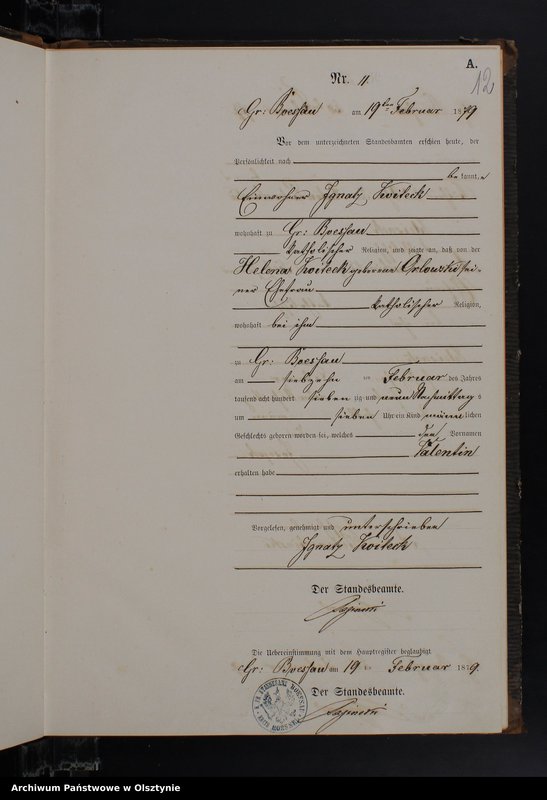 A.
12
Nr. 11
Gr: Boessau am 19ten Februar 1879
Vor dem unterzeichneten Standesbamten erschien heute, der
Persönlichkeit nach
be kannt, e
Einwohner Ignatz Kwiteck
wohnhaft zu Gr: Boessau
katholischer Religion, und zeigte an, daß von der
Helena Kwiteck geborene Orlowski sei-
ner Ehefrau
katholischer Religion,
wohnhaft bei ihm
zu Gr: Boessau
am siebzehn ten Februar des Jahres
tausend acht hundert sieben zig und neun Nachmittag s
um sieben Uhr ein Kind männ lichen
Geschlechts geboren worden sei, welches den Vornamen
Valentin
erhalten habe
Vorgelesen, genehmigt und unterschrieben
Ignatz Kwiteck
Der Standesbeamte.
Die Uebereinstimmung mit dem Hauptregister beglaubigt
Gr: Boessau am 19 ten Februar 1879.
Der Standesbeamte.
Archiwum Państwowe w Olsztynie